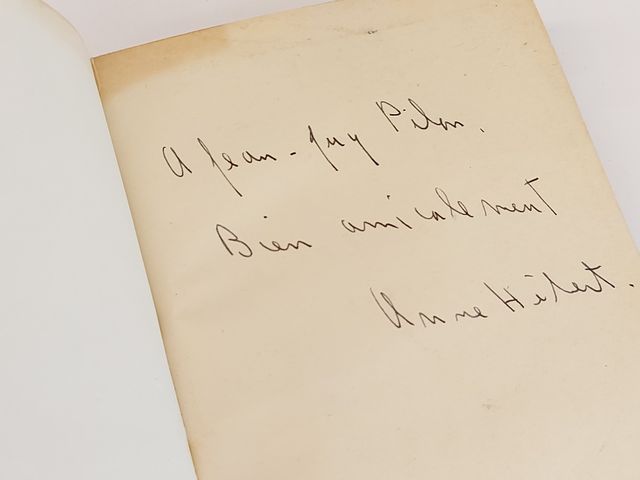 A Jean-Guy Pilon.
Bien amicalement
Anne Hébert.